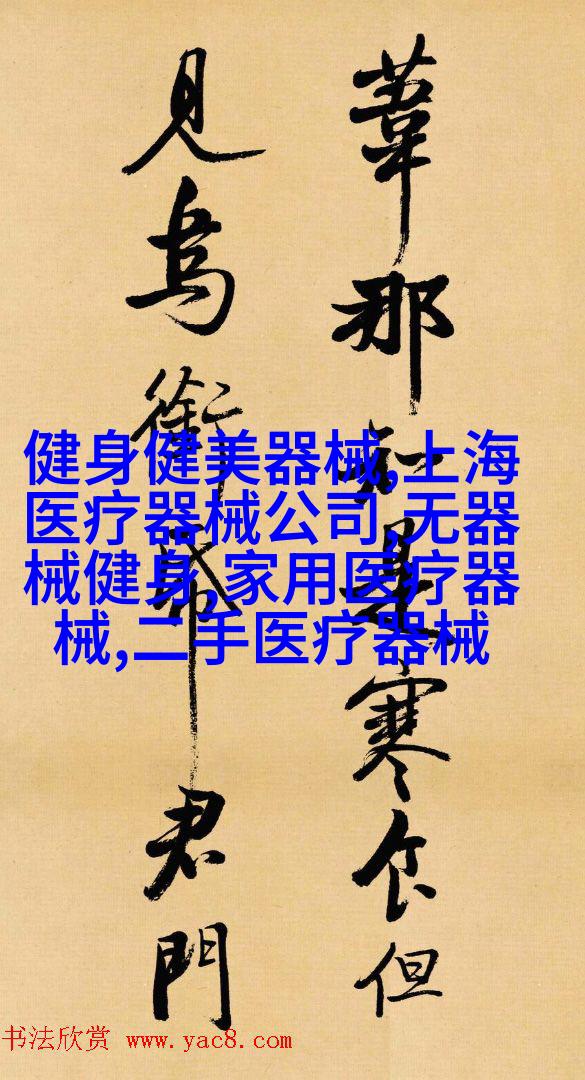 葦那知是寒食但
見烏銜帋君門
健身健美器械,上海
医疗器械公司,无器
械健身,家用医疗器
械,二手医疗器械
书法欣赏 www.yac8.com